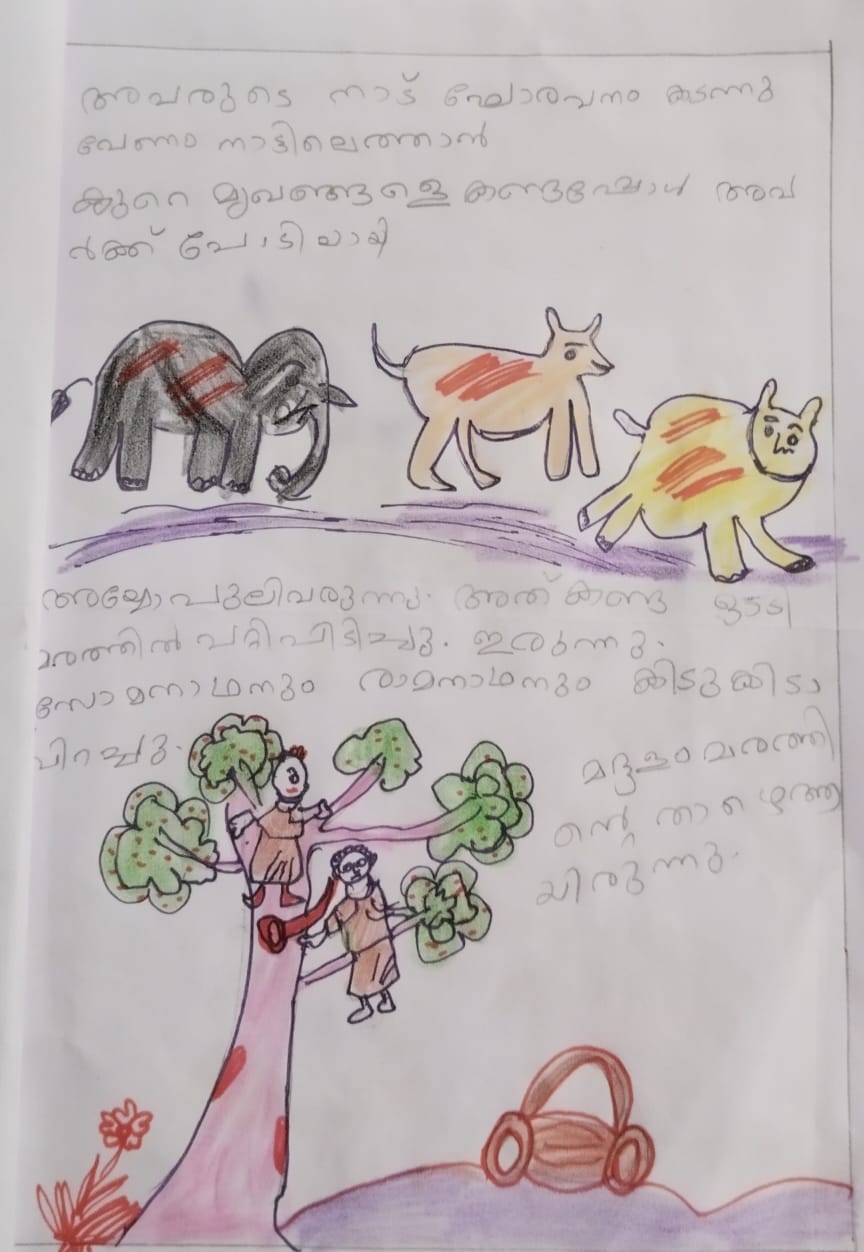 അവരുടെ നാട് ഘോരവനം കടന്നു
വേണം നാട്ടിലെത്താൻ
കുറെ മൃഖങ്ങളെ കണ്ടപ്പോൾ അവ
ർക്ക് പേടിയായി
അയ്യോ പുലിവരുന്നു. അത് കണ്ട ഓടി
മരത്തിൽ പറ്റിപിടിച്ചു. ഇരുന്നു.
സോമനാഥനും രാമനാഥനും കിടുക്കിടാ
വിറച്ചു.
മദ്ദളം മരത്തി
ന്റെ താഴെത്ത
യിരുന്നു.